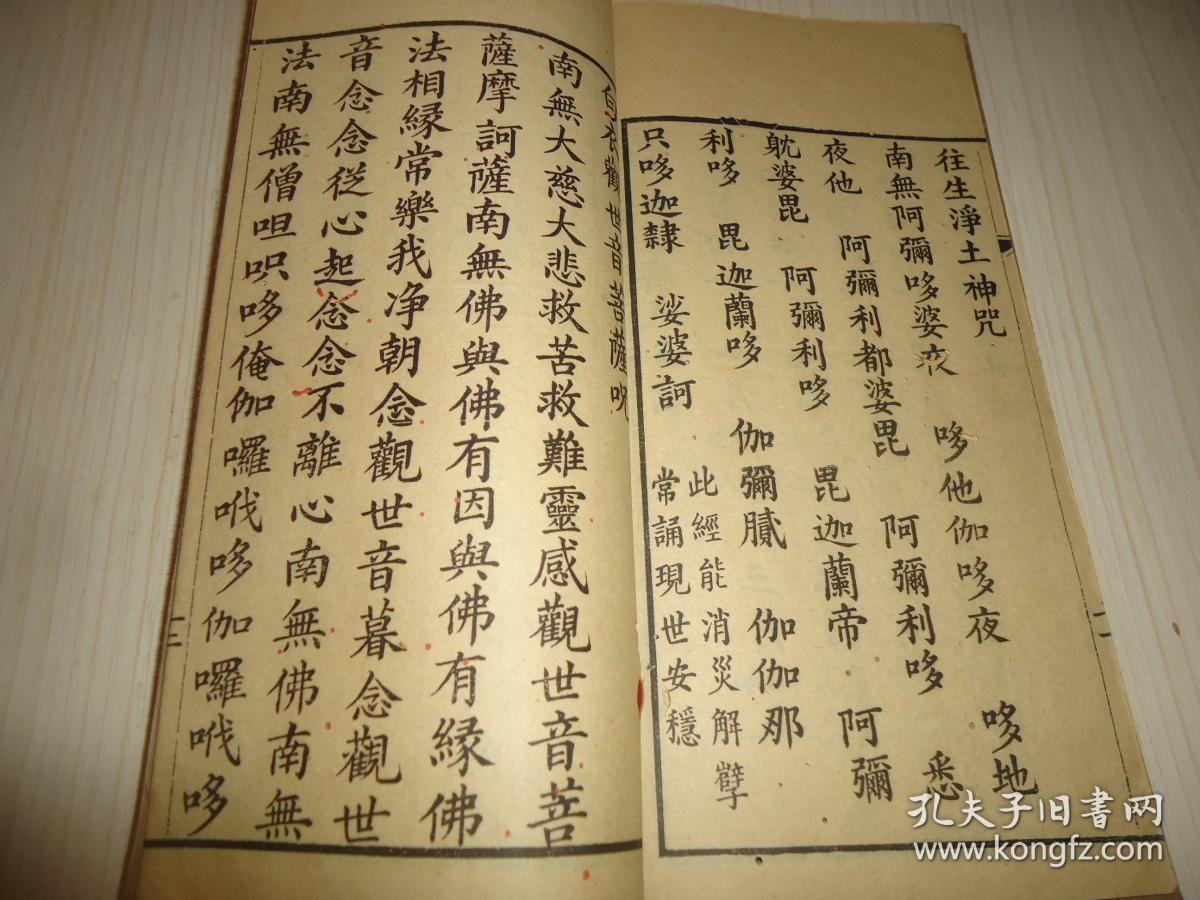 往生淨土神咒
南無阿彌哆婆夜 哆他伽哆夜 哆地
夜他 阿彌利都婆毘 阿彌利哆 悉
耽婆毘 阿彌利哆 毘迦蘭帝 阿彌
利哆 毘迦蘭哆 伽彌膩 伽伽那
只哆迦隸 娑婆訶
此經能消災解孽
常誦現世安穩
白衣觀世音菩薩咒
南無大慈大悲救苦救難靈感觀世音菩
薩摩訶薩南無佛與佛有因與佛有緣佛
法相緣常樂我净朝念觀世音暮念觀世
音念念從心起念念不離心南無佛南無
法南無僧呾呮哆俺伽囉𠲎哆伽囉𠲎哆
孔夫子旧书网
www.kongfz.com